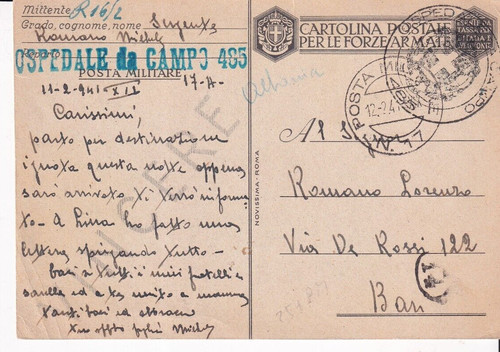 Mittente: R16/2
Grado, cognome, nome Sergente
Romano Michele
OSPEDALE da CAMPO 485
POSTA MILITARE 17-A-
11-2-941 XIX
Carissimi,
parto per destinazione
ignota questa notte appena
sarò arrivato Vi terrò informa
to - A Lina ho fatto una
lettera spiegando tutto -
baci a tutti i miei fratelli e
sorelle ed a te unito a mamma
tanti baci ed abbracci
tuo affto figlio Michele
VINCERE
CARTOLINA POSTALE
PER LE FORZE ARMATE
ESENTE DA
TASSA PO
Albania
POSTA MILITARE
N. 17
12-2-41
OSPEDALE
CAMPO
NOVISSIMA - ROMA
Al Signor
Romano Lorenzo
Via De Rossi 122
Bari